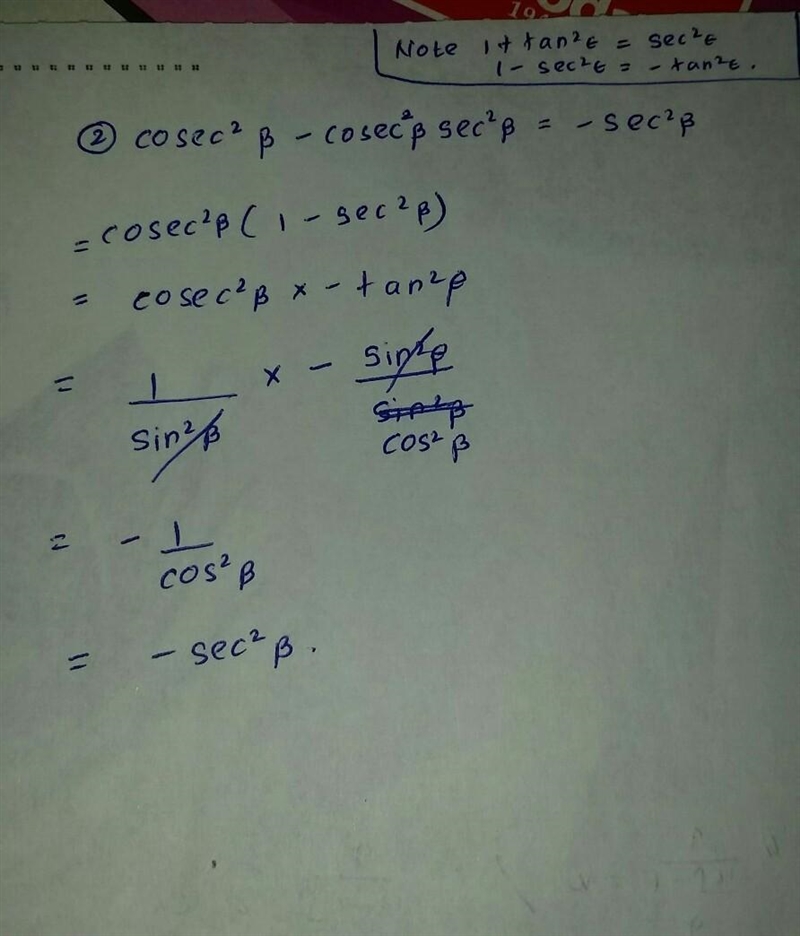 19
Note 1 + tan²ε = sec²ε
1 - sec²ε = - tan²ε.
② cosec² β - cosec²β sec²β = - sec²β
= cosec²β ( 1 - sec²β)
= cosec²β × - tan²β
= 1/sin²β × - sin²β/cos²β
= - 1/cos²β
= - sec²β.